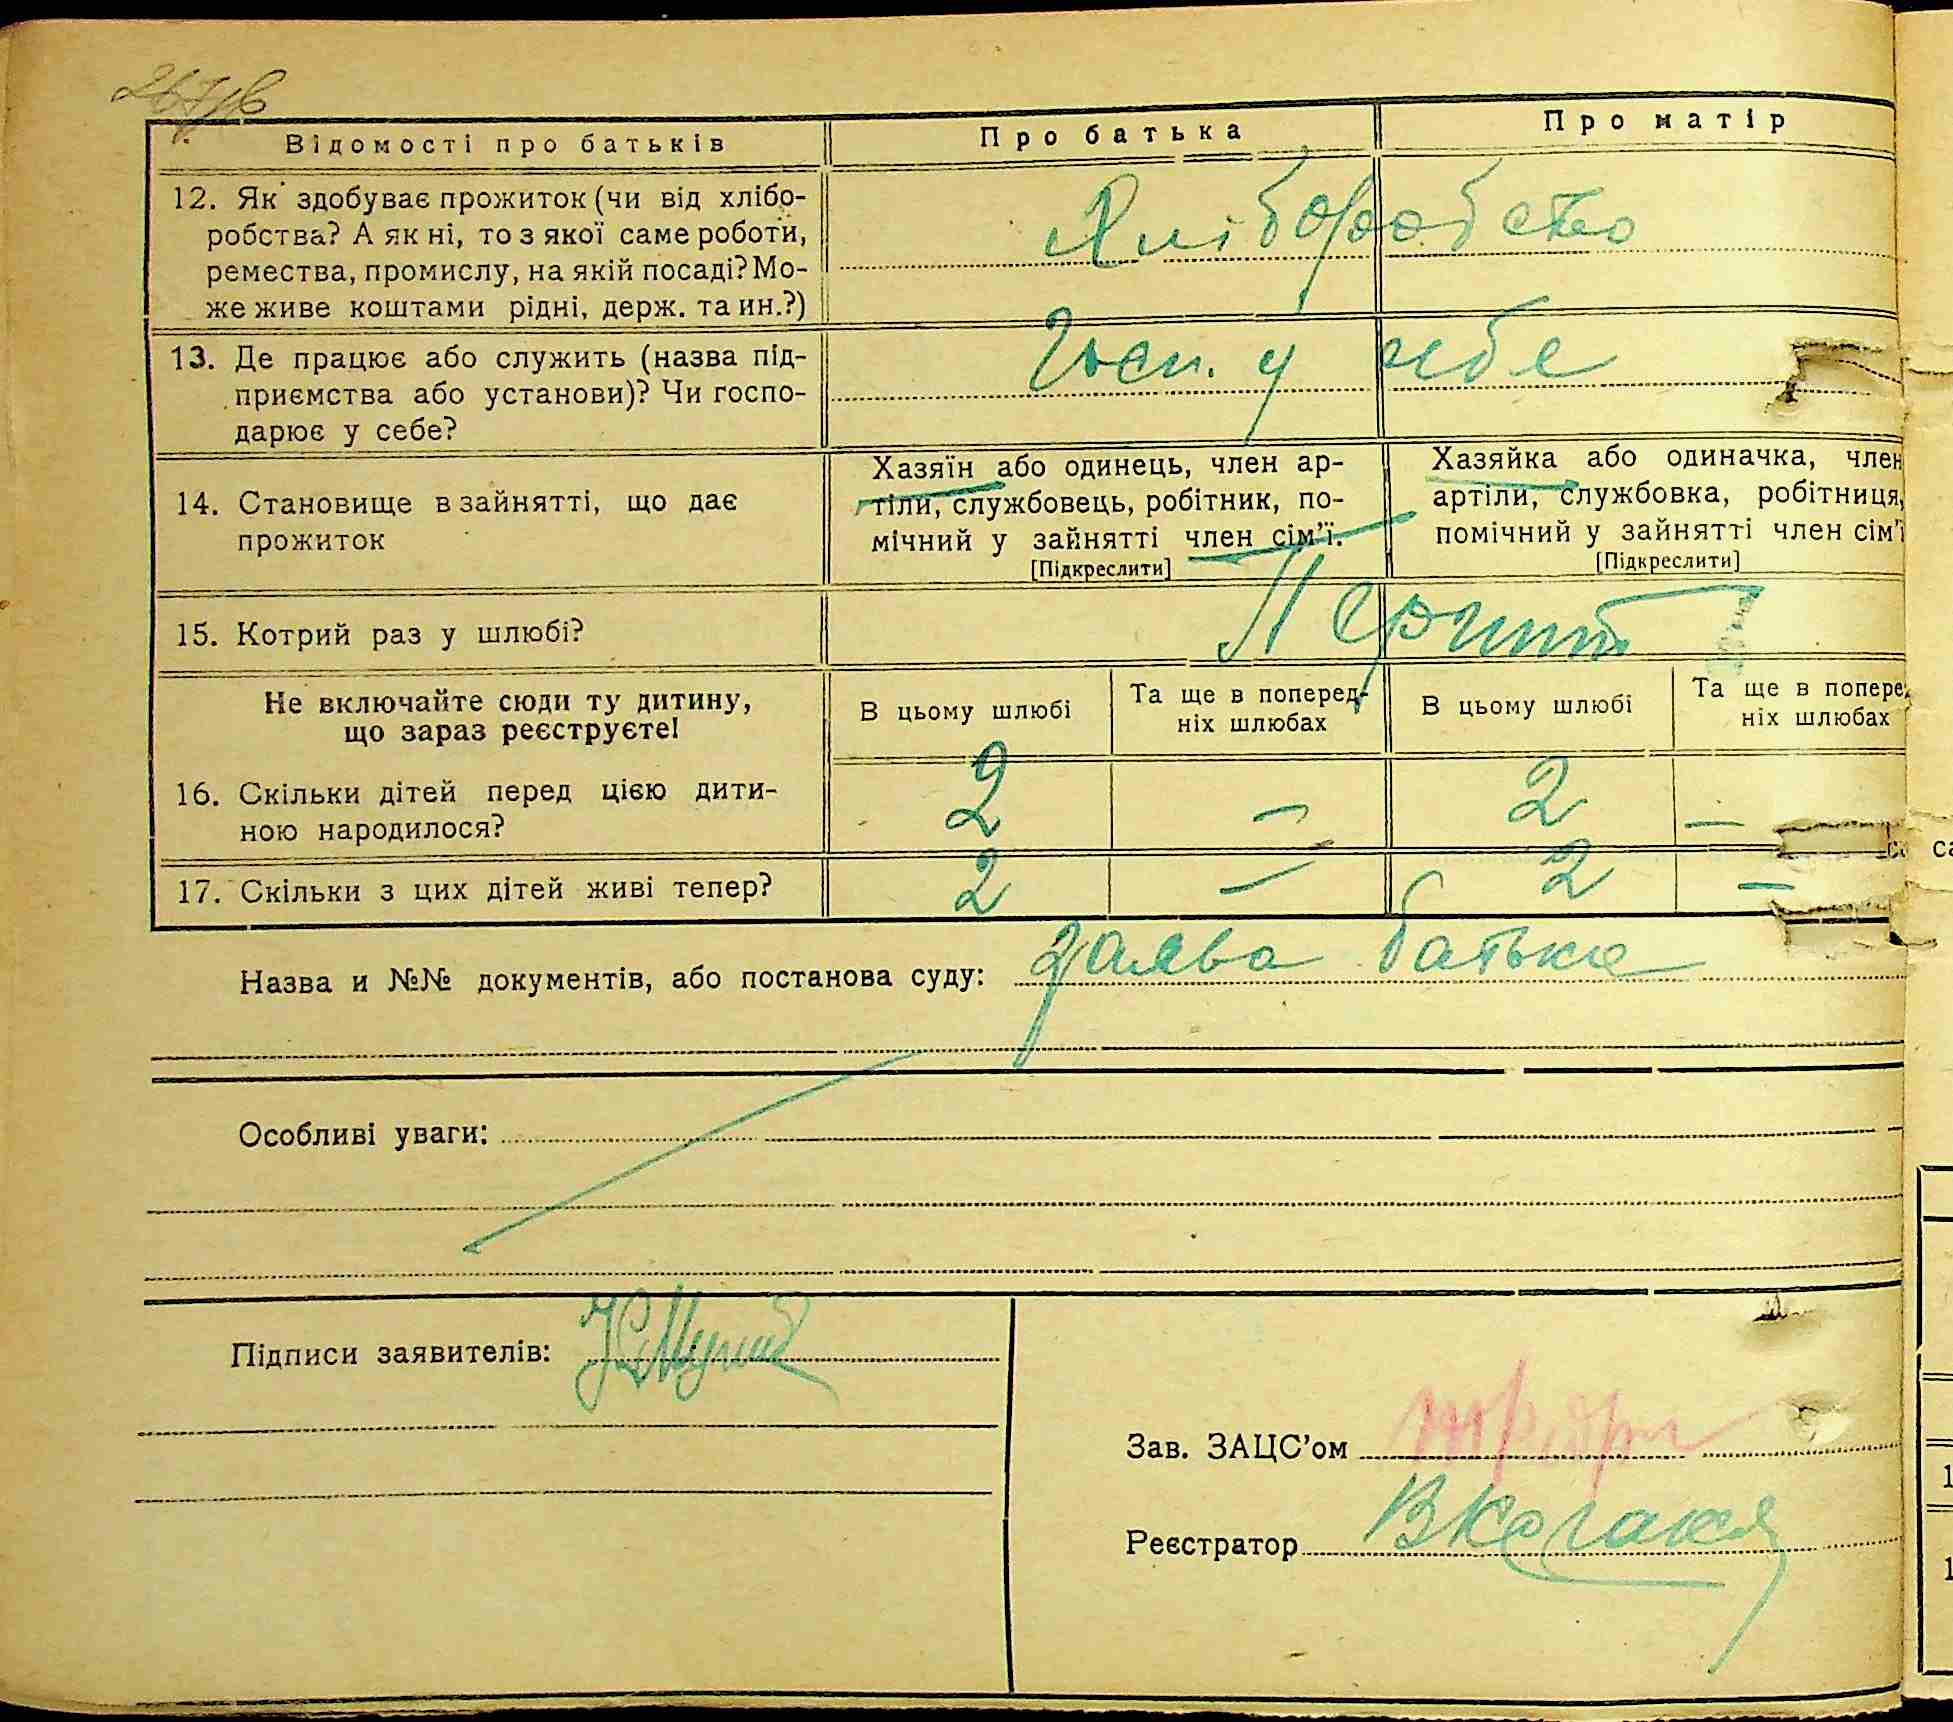 Відомості про батьків
Про батька
Про матір
12. Як здобуває прожиток (чи від хлібо-
робства? А як ні, то з якої саме роботи,
ремества, промислу, на якій посаді? Мо-
же живе коштами рідні, держ. та ин.?)
Хліборобство
13. Де працює або служить (назва під-
приємства або установи)? Чи госпо-
дарює у себе?
Госп. у себе
14. Становище в зайнятті, що дає
прожиток
Хазяїн або одинець, член ар-
тіли, службовець, робітник, по-
мічний у зайнятті член сім'ї.
[Підкреслити]
Хазяйка або одиначка, член
артіли, службовка, робітниця,
помічний у зайнятті член сім'ї
[Підкреслити]
15. Котрий раз у шлюбі?
Не включайте сюди ту дитину,
що зараз реєструєте!
В цьому шлюбі
Та ще в поперед-
ніх шлюбах
В цьому шлюбі
Та ще в попере
ніх шлюбах
16. Скільки дітей перед цією дити-
ною народилося?
2 — 2 —
17. Скільки з цих дітей живі тепер?
2 — 2 —
Назва и №№ документів, або постанова суду: Заява батька
Особливі уваги:
Підписи заявителів:
Зав. ЗАЦС'ом
Реєстратор